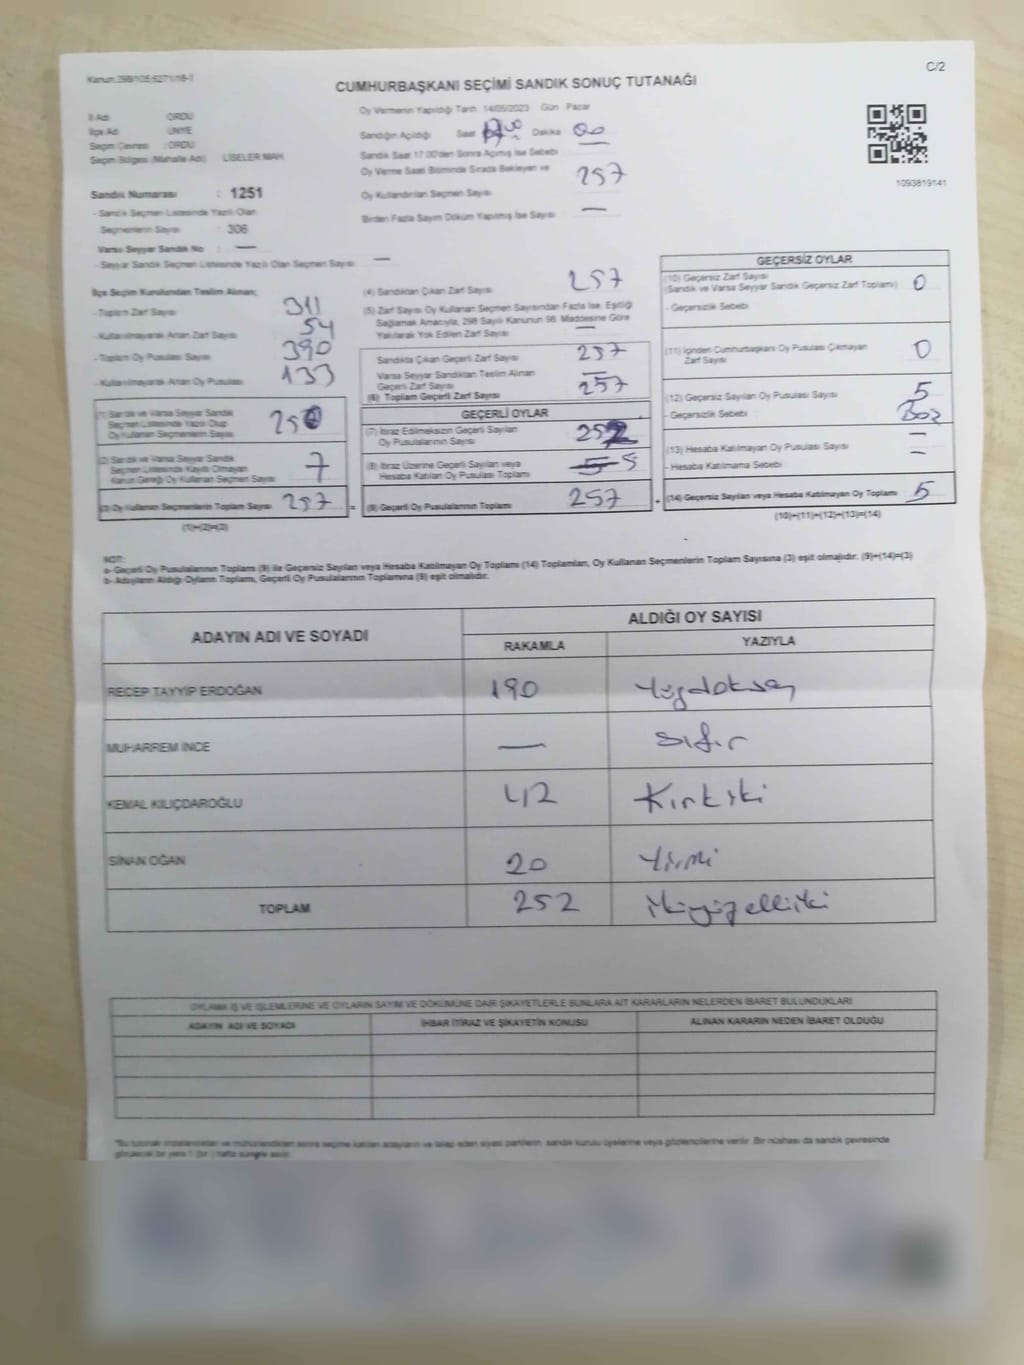 Kanun:298/105;6271/16-1
C/2
CUMHURBAŞKANI SEÇİMİ SANDIK SONUÇ TUTANAĞI
İl Adı ORDU
İlçe Adı ÜNYE
Seçim Çevresi : ORDU
Seçim Bölgesi (Mahalle Adı) LİSELER MAH.
Sandık Numarası : 1251
- Sandık Seçmen Listesinde Yazılı Olan
Seçmenlerin Sayısı : 306
Varsa Seyyar Sandık No : —
- Seyyar Sandık Seçmen Listesinde Yazılı Olan Seçmen Sayısı —
Oy Vermenin Yapıldığı Tarih 14/05/2023 Gün Pazar
Sandığın Açıldığı Saat Dakika 00
Sandık Saat 17.00'den Sonra Açılmış İse Sebebi —
Oy Verme Saati Bitiminde Sırada Bekleyen ve
Oy Kullandırılan Seçmen Sayısı 257
Birden Fazla Sayım Döküm Yapılmış İse Sayısı —
1093819141
İlçe Seçim Kurulundan Teslim Alınan;
- Toplam Zarf Sayısı 311
- Kullanılmayarak Artan Zarf Sayısı 54
- Toplam Oy Pusulası Sayısı 390
- Kullanılmayarak Artan Oy Pusulası 133
(1) Sandık ve Varsa Seyyar Sandık
Seçmen Listesinde Yazılı Olup
Oy Kullanan Seçmenlerin Sayısı 250
(2) Sandık ve Varsa Seyyar Sandık
Seçmen Listesinde Kayıtlı Olmayan
Kanun Gereği Oy Kullanan Seçmen Sayısı 7
(3) Oy Kullanan Seçmenlerin Toplam Sayısı 257 =
(1)+(2)=(3)
(4) Sandıktan Çıkan Zarf Sayısı 257
(5) Zarf Sayısı Oy Kullanan Seçmen Sayısından Fazla İse, Eşitliği
Sağlamak Amacıyla, 298 Sayılı Kanunun 98. Maddesine Göre
Yakılarak Yok Edilen Zarf Sayısı —
Sandıkta Çıkan Geçerli Zarf Sayısı 257
Varsa Seyyar Sandıktan Teslim Alınan
Geçerli Zarf Sayısı —
(6) Toplam Geçerli Zarf Sayısı 257
GEÇERLİ OYLAR
(7) İtiraz Edilmeksizin Geçerli Sayılan
Oy Pusulalarının Sayısı 252
(8) İtiraz Üzerine Geçerli Sayılan veya
Hesaba Katılan Oy Pusulası Toplamı 5 5
(9) Geçerli Oy Pusulalarının Toplamı 257 +
GEÇERSİZ OYLAR
(10) Geçersiz Zarf Sayısı
(Sandık ve Varsa Seyyar Sandık Geçersiz Zarf Toplamı) 0
- Geçersizlik Sebebi
(11) İçinden Cumhurbaşkanı Oy Pusulası Çıkmayan
Zarf Sayısı 0
(12) Geçersiz Sayılan Oy Pusulası Sayısı 5
- Geçersizlik Sebebi
(13) Hesaba Katılmayan Oy Pusulası Sayısı —
- Hesaba Katılmama Sebebi —
(14) Geçersiz Sayılan veya Hesaba Katılmayan Oy Toplamı 5
(10)+(11)+(12)+(13)=(14)
NOT:
a- Geçerli Oy Pusulalarının Toplamı (9) ile Geçersiz Sayılan veya Hesaba Katılmayan Oy Toplamı (14) Toplamları, Oy Kullanan Seçmenlerin Toplam Sayısına (3) eşit olmalıdır. (9)+(14)=(3)
b- Adayların Aldığı Oyların Toplamı, Geçerli Oy Pusulalarının Toplamına (9) eşit olmalıdır.
ADAYIN ADI VE SOYADI
ALDIĞI OY SAYISI
RAKAMLA YAZIYLA
RECEP TAYYİP ERDOĞAN 190 Yüzdoksan
MUHARREM İNCE — sıfır
KEMAL KILIÇDAROĞLU 42 Kırkiki
SİNAN OĞAN 20 Yirmi
TOPLAM 252 ikiyüzelliiki
OYLAMA İŞ VE İŞLEMLERİNE VE OYLARIN SAYIM VE DÖKÜMÜNE DAİR ŞİKAYETLERLE BUNLARA AİT KARARLARIN NELERDEN İBARET BULUNDUKLARI
ADAYIN ADI VE SOYADI İHBAR İTİRAZ VE ŞİKAYETİN KONUSU ALINAN KARARIN NEDEN İBARET OLDUĞU
*Bu tutanak imzalandıktan ve mühürlendikten sonra seçime katılan adayların ve talep eden siyasi partilerin sandık kurulu üyelerine veya gözlemcilerine verilir. Bir nüshası da sandık çevresinde
görülecek bir yere 1 (bir) hafta süreyle asılır.